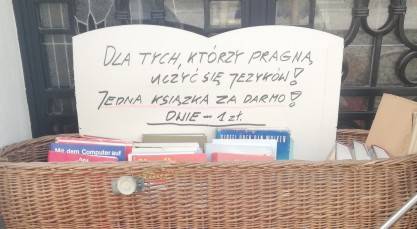 DLA TYCH, KTÓRZY PRAGNĄ
UCZYĆ SIĘ JĘZYKÓW!
JEDNA KSIĄŻKA ZA DARMO!
DWIE - 1 zł.
Mit dem Computer auf